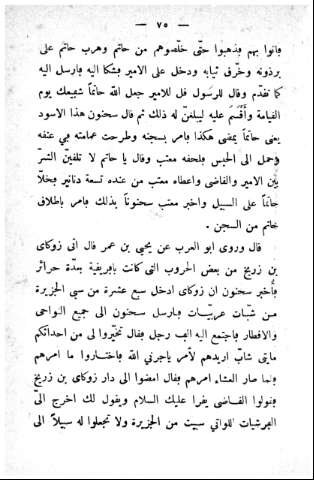 — ٧٥ —
فأتوا بهم فذهبوا حتّى خلّصوهم من حاتم وهرب حاتم على
برذونه وخرّف ثيابه ودخل على الامير فشكا اليه فارسل اليه
كما تقدّم وقال للرسول فل للامير جعل اللّه حاتماً شفيعك يوم
القيامة وأقسم عليه ليبلغنّ له ذلك ثم قال سحنون هذا الاسود
يعنى حاتماً يمضى هكذا فامر بسجنه وطرحت عمامته فى عنفه
وحمل الى الحبس فلحفه معتب وقال يا حاتم لا تلفينّ الشرّ
بين الامير والفاضى واعطاه معتب من عنده تسعة دنانير فخلّا
حاتماً على السبيل واخبر معتب سحنوناً بذلك فامر باطلاق
خاتم من السجن .
قال وروى ابو العرب عن يحيى بن عمر قال اتى زوكاى
بن زريج من بعض الحروب التى كانت بافريفية بعدّة حرائر
فأخبر سحنون ان زوكاى ادخل سبع عشرة من سبى الجزيرة
مـن شبّات عربيّـات فارسل سحنون الى جميع النواحى
والافطار فاجتمع اليه الف رجل فقال تخيّروا لى من احداثكم
مايتى شابّ اريدهم لأمر ياجرنى اللّه فاختاروا ما امرهم
فلما صار العشاء امرهم فقال امضوا الى دار زوكاى بن زريج
فنولوا الفـاضى يفرا عليك السلام ويفول لك اخرج الىّ
الفرشيات اللواتي سبيت من الجزيرة ولا تجعلوا له سبيلاً الى